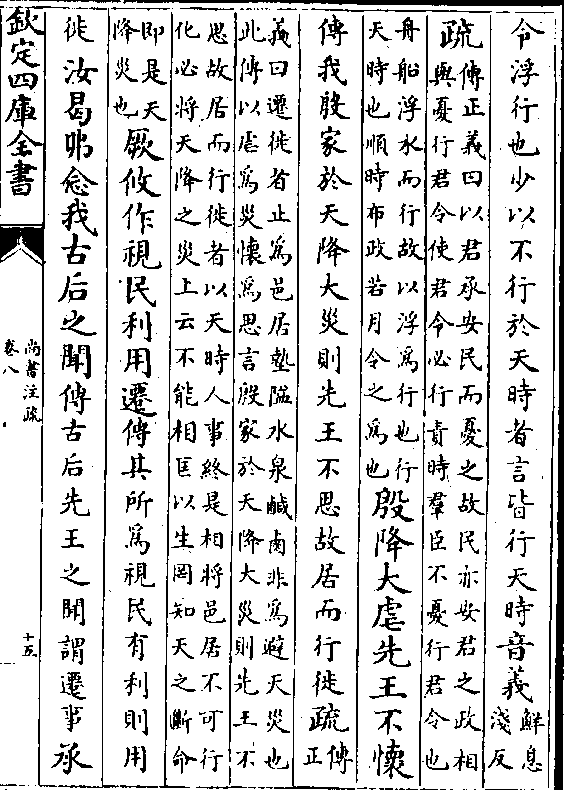 令浮行也少以不行於天時者言皆行天時音義鮮息淺反
疏傳正義曰以君承安民而憂之故民亦安君之政相與憂行君令使君令必行責時羣臣不憂行君令也
舟船浮水而行故以浮為行也行天時也順時布政若月令之為也殷降大虐先王不懷
傳我殷家於天降大災則先王不思故居而行徙疏傳正
義曰遷徙者止為邑居墊隘水泉鹹鹵非為避天災也此傳以虐為災懷為思言殷家於天降大災則先王不
思故居而行徙者以天時人事終是相將邑居不可行化必將天降之災上云不能相匡以生罔知天之斷命
即是天降災也厥攸作視民利用遷傳其所為視民有利則用
徙汝曷弗念我古后之聞傳古后先王之聞謂遷事承
欽定四庫全書
尚書注疏
卷八
十五